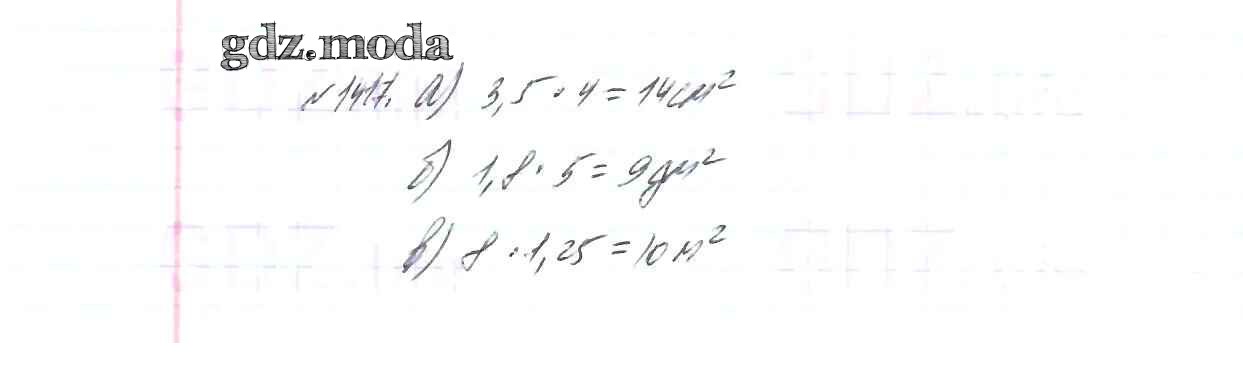 gdz.moda
№1417. а) 3,5 · 4 = 14 см²
б) 1,8 · 5 = 9 дм²
в) 8 · 1,25 = 10 м²